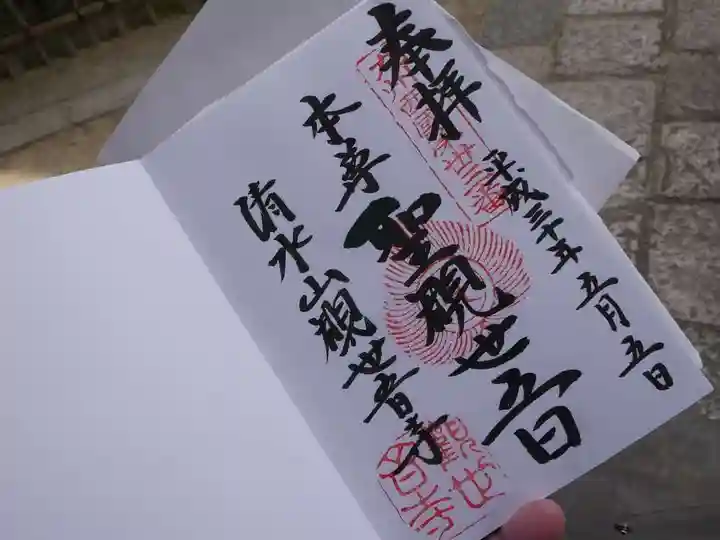 平成三十年五月五日
奉拝
聖観世音
本尊
清水山観世音寺
観世
音寺